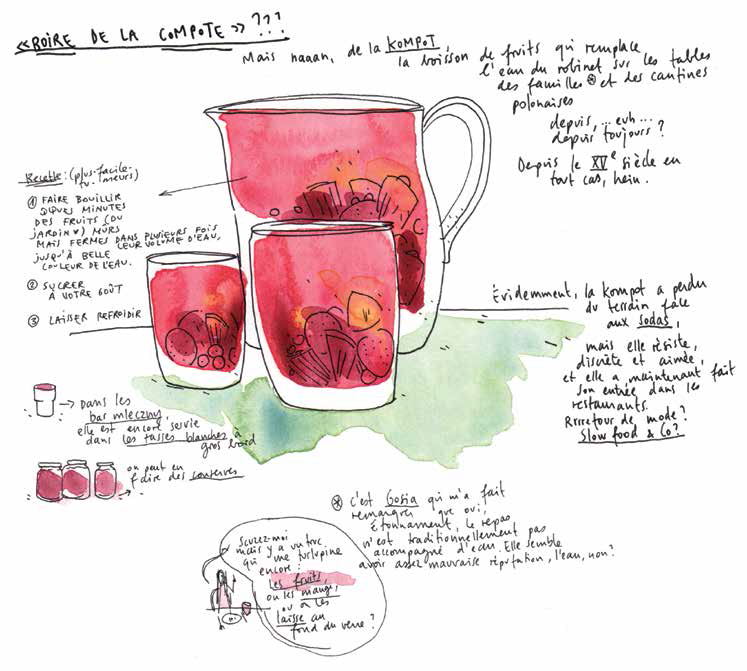 «BOIRE DE LA COMPOTE» ???
Mais naaan, de la KOMPOT,
la boisson de fruits qui remplace
l'eau du robinet sur les tables
des familles* et des cantines
polonaises
depuis, ... euh ...
depuis toujours ?
Depuis le XVe siècle en
tout cas, hein.
Recette : (plus-facile-
tu-meurs)
① FAIRE BOUILLIR
QLQUES MINUTES
DES FRUITS (DU
JARDIN ♥) MÛRS
MAIS FERMES DANS PLUSIEURS FOIS
LEUR VOLUME D'EAU,
JUSQU'À BELLE
COULEUR DE L'EAU.
② SUCRER
À VOTRE GOÛT
③ LAISSER REFROIDIR
Évidemment, la kompot a perdu
du terrain face
aux sodas,
mais elle résiste,
discrète et aimée,
et elle a maintenant fait
son entrée dans les
restaurants.
Rrrretour de mode ?
Slow food & Co ?
→ Dans les
bar mleczny,
elle est encore servie
dans les tasses blanches à
gros bord
on peut en
faire des conserves
* C'est Gosia qui m'a fait
remarquer que oui,
étonnamment, le repas
n'est traditionnellement pas
accompagné d'eau. Elle semble
avoir assez mauvaise réputation, l'eau, non ?
Scusez-moi
mais y a un truc
qui me turlupine
encore :
Les fruits,
on les mange,
ou on les
laisse au
fond du verre ?